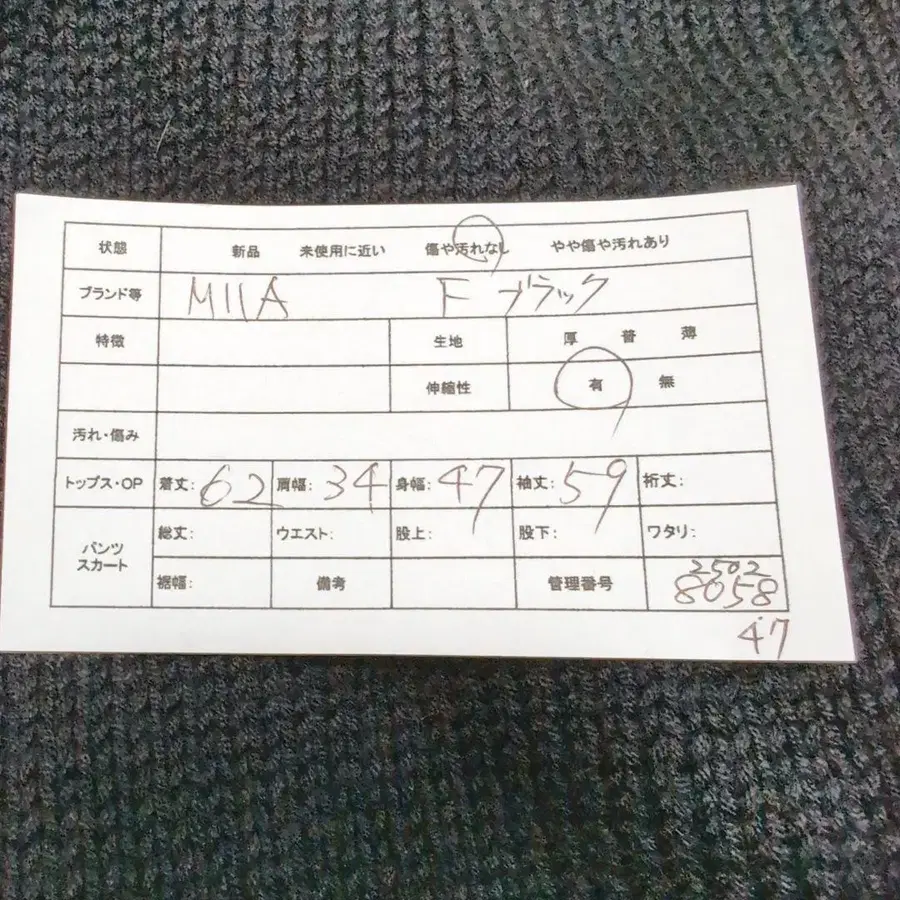 状態 新品 未使用に近い 傷や汚れなし やや傷や汚れあり
ブランド等 MIIA F ブラック
特徴 生地 厚 普 薄
伸縮性 有 無
汚れ・傷み
トップス・OP 着丈: 62 肩幅: 34 身幅: 47 袖丈: 59 裄丈:
パンツ スカート 総丈: ウエスト: 股上: 股下: ワタリ:
裾幅: 備考 管理番号 2502
8058
47